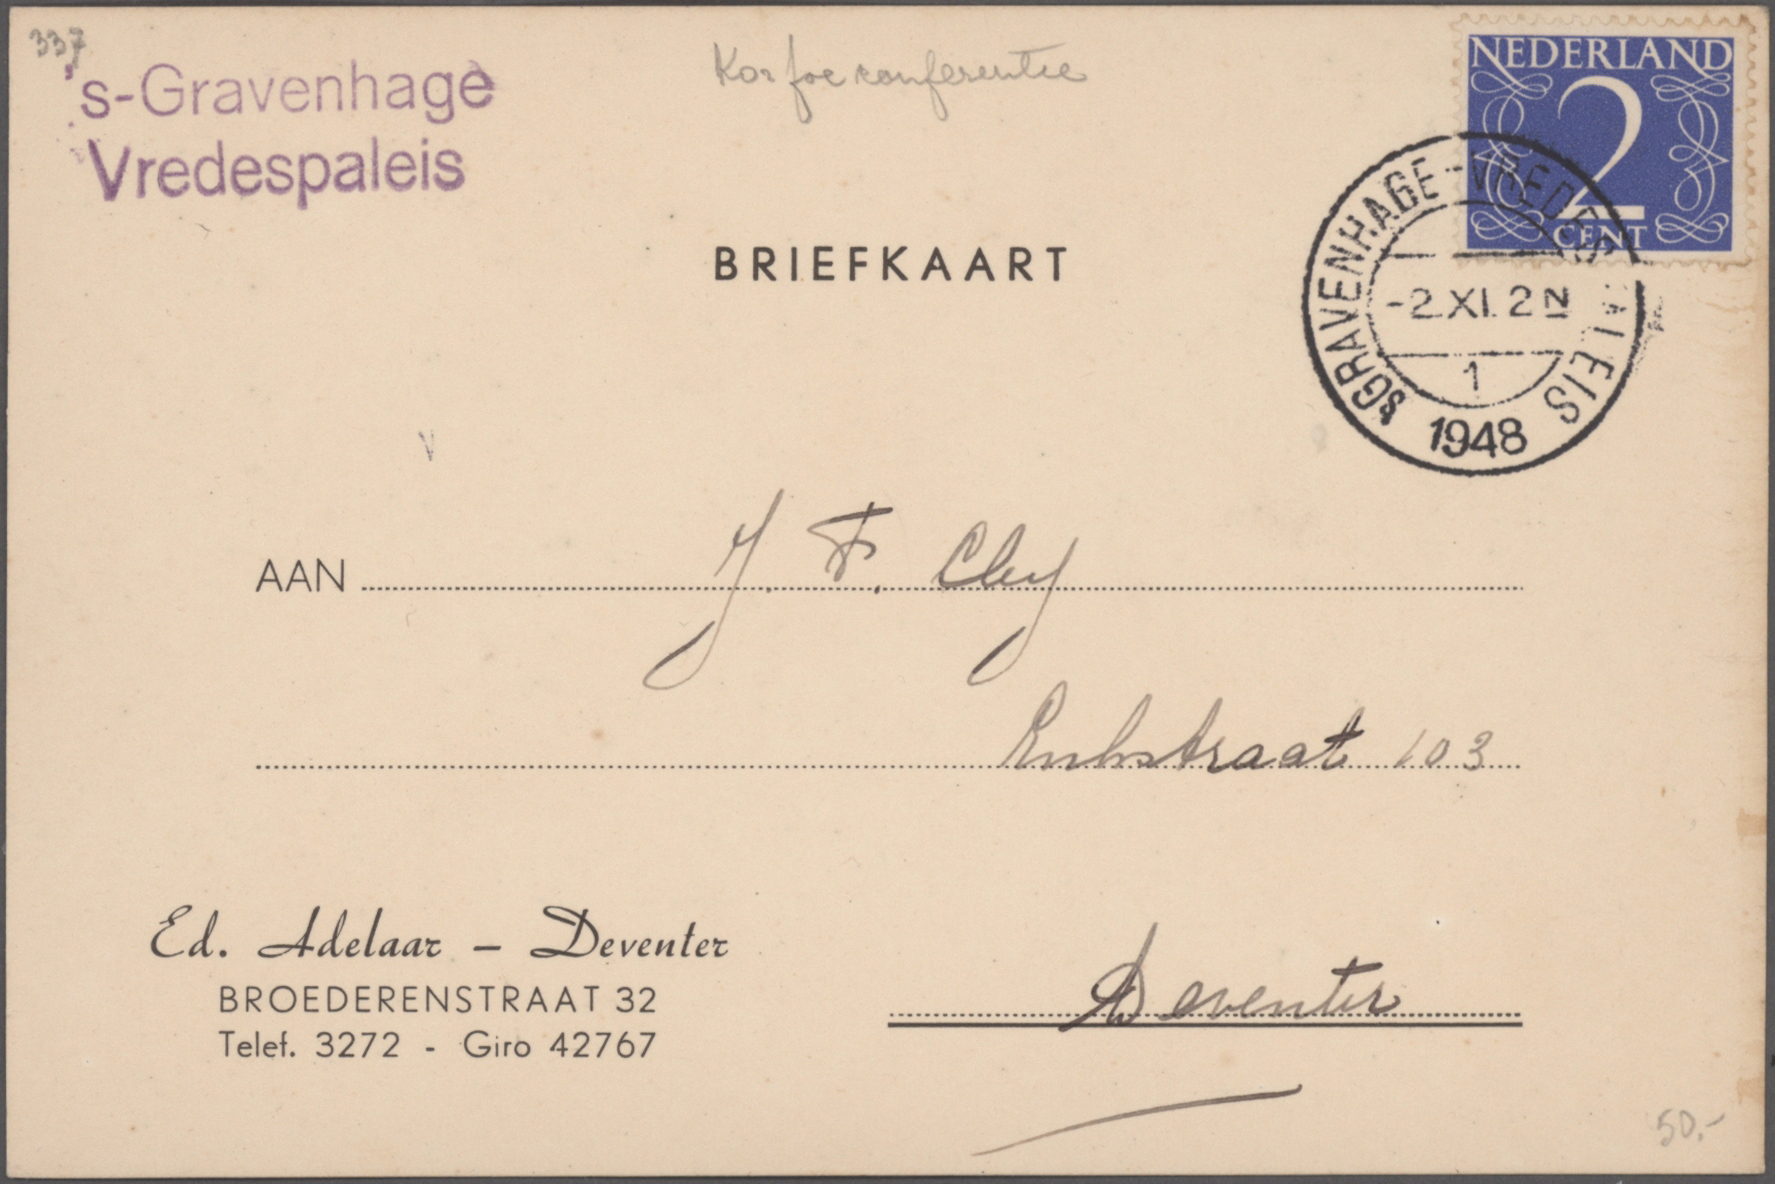 337
's-Gravenhage
Vredespaleis
Korfoe conferentie
NEDERLAND
2
CENT
BRIEFKAART
'sGRAVENHAGE-VREDESPALEIS
-2.XI.2N
1
1948
AAN J. F. Cley
Enkstraat 103
Deventer
Ed. Adelaar – Deventer
BROEDERENSTRAAT 32
Telef. 3272 - Giro 42767
50.-